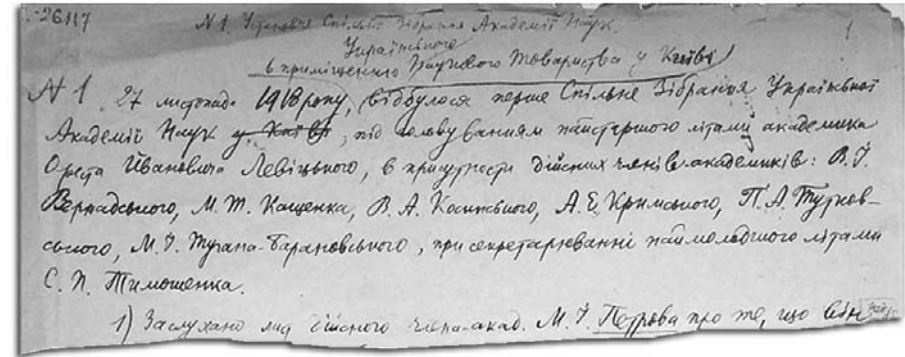 -26117
№ 1. Установче Спільне Зібрання Академії Наук. 1.
Українського
в приміщенню Наукового Товариства у Київі
№ 1. 27 листопада 1918 року, відбулося перше Спільне Зібрання Української
Академії Наук у Київі, під головуванням найстаршого літами академика
Ореста Ивановича Левіцького, в присутности дійсних членів-академиків: В. І.
Вернадського, М. Т. Кащенка, В. А. Косинського, А. Е. Кримського, П. А. Тутков-
ського, М. І. Тугана-Барановського, при секретарюванні наймолодшого літами
С. П. Тимошенка.
1) Заслухано лист дійсного члена-акад. М. І. Петрова про те, що він